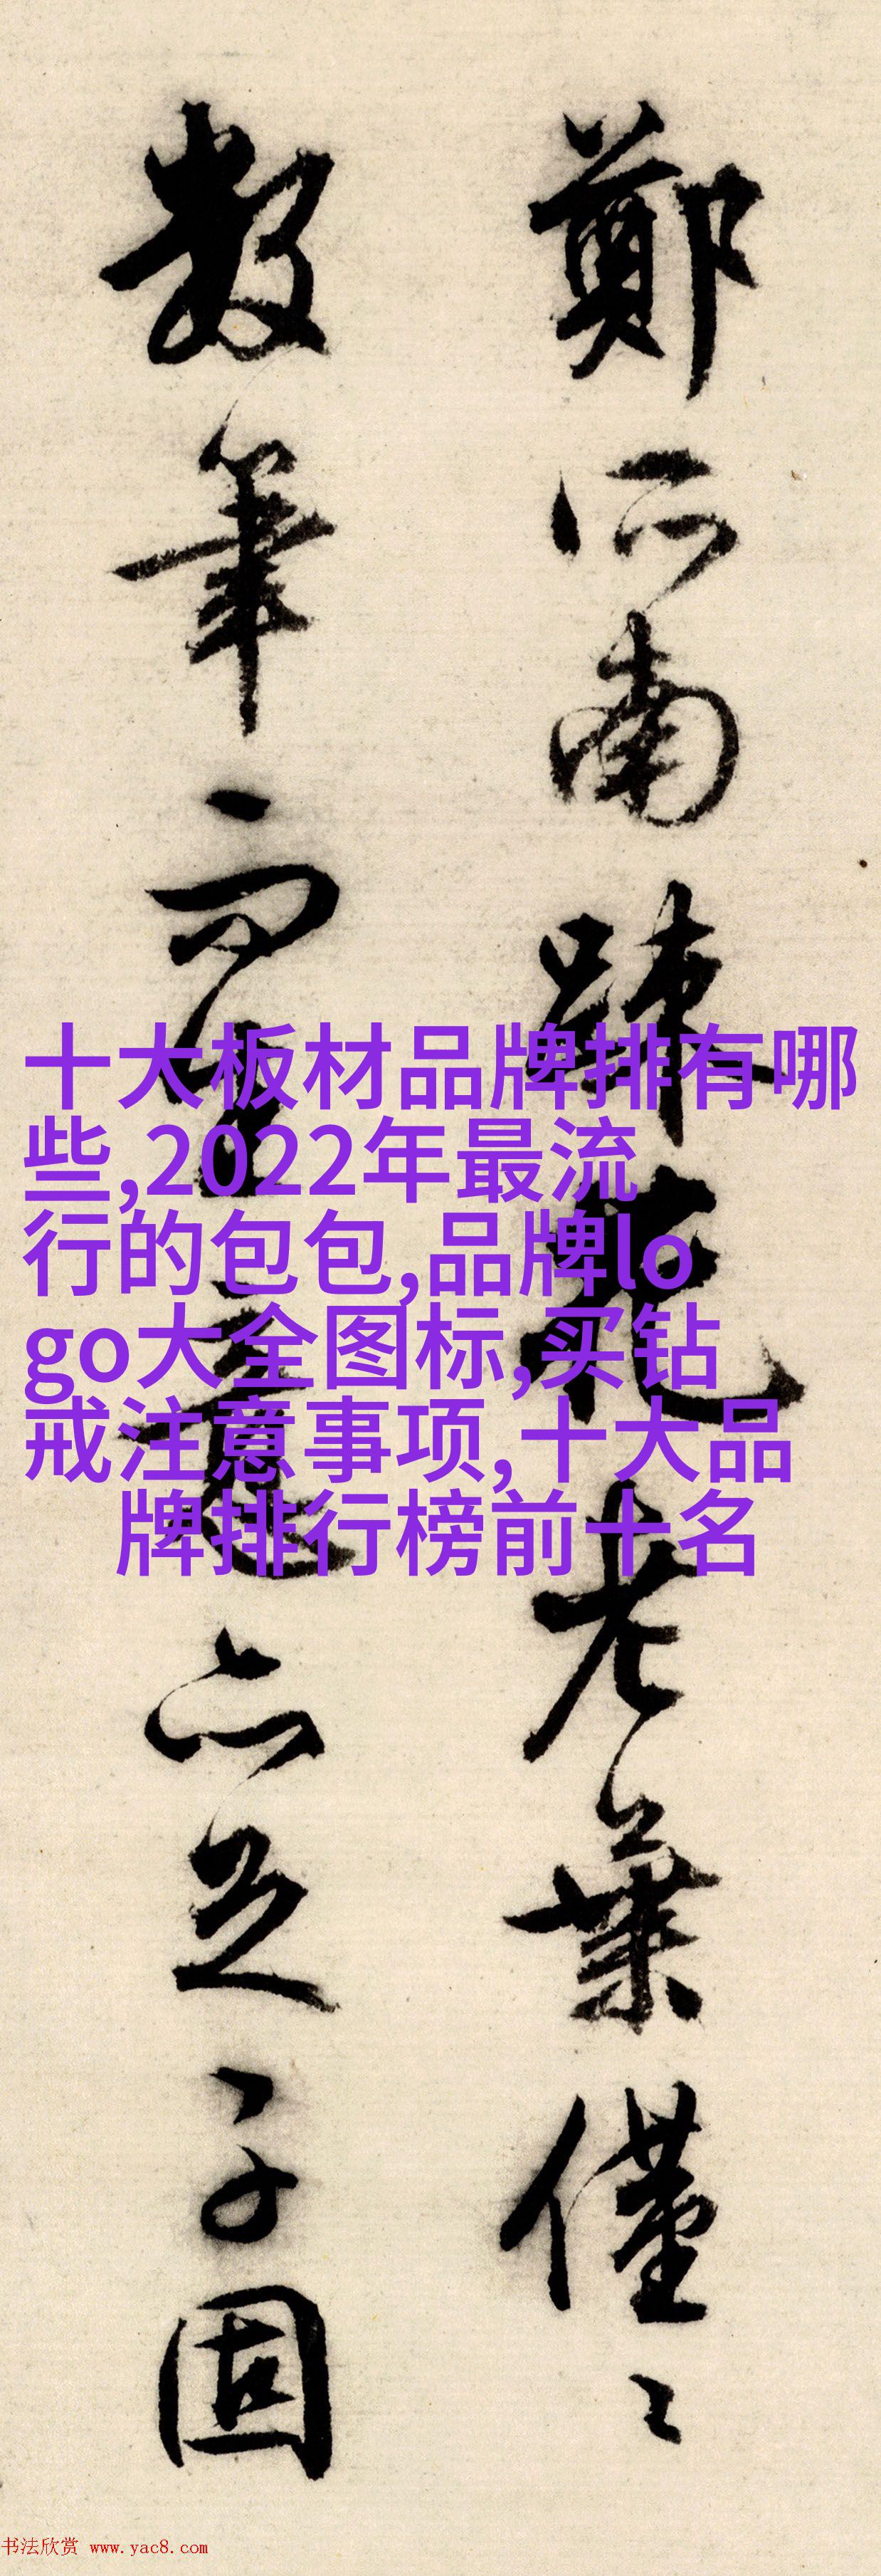 鄭所南踈花老葉僅〻
數筆而生意亦足子固
十大板材品牌排有哪
些,2022年最流
行的包包,品牌lo
go大全图标,买钻
戒注意事项,十大品
牌排行榜前十名
书法欣赏 www.yac8.com